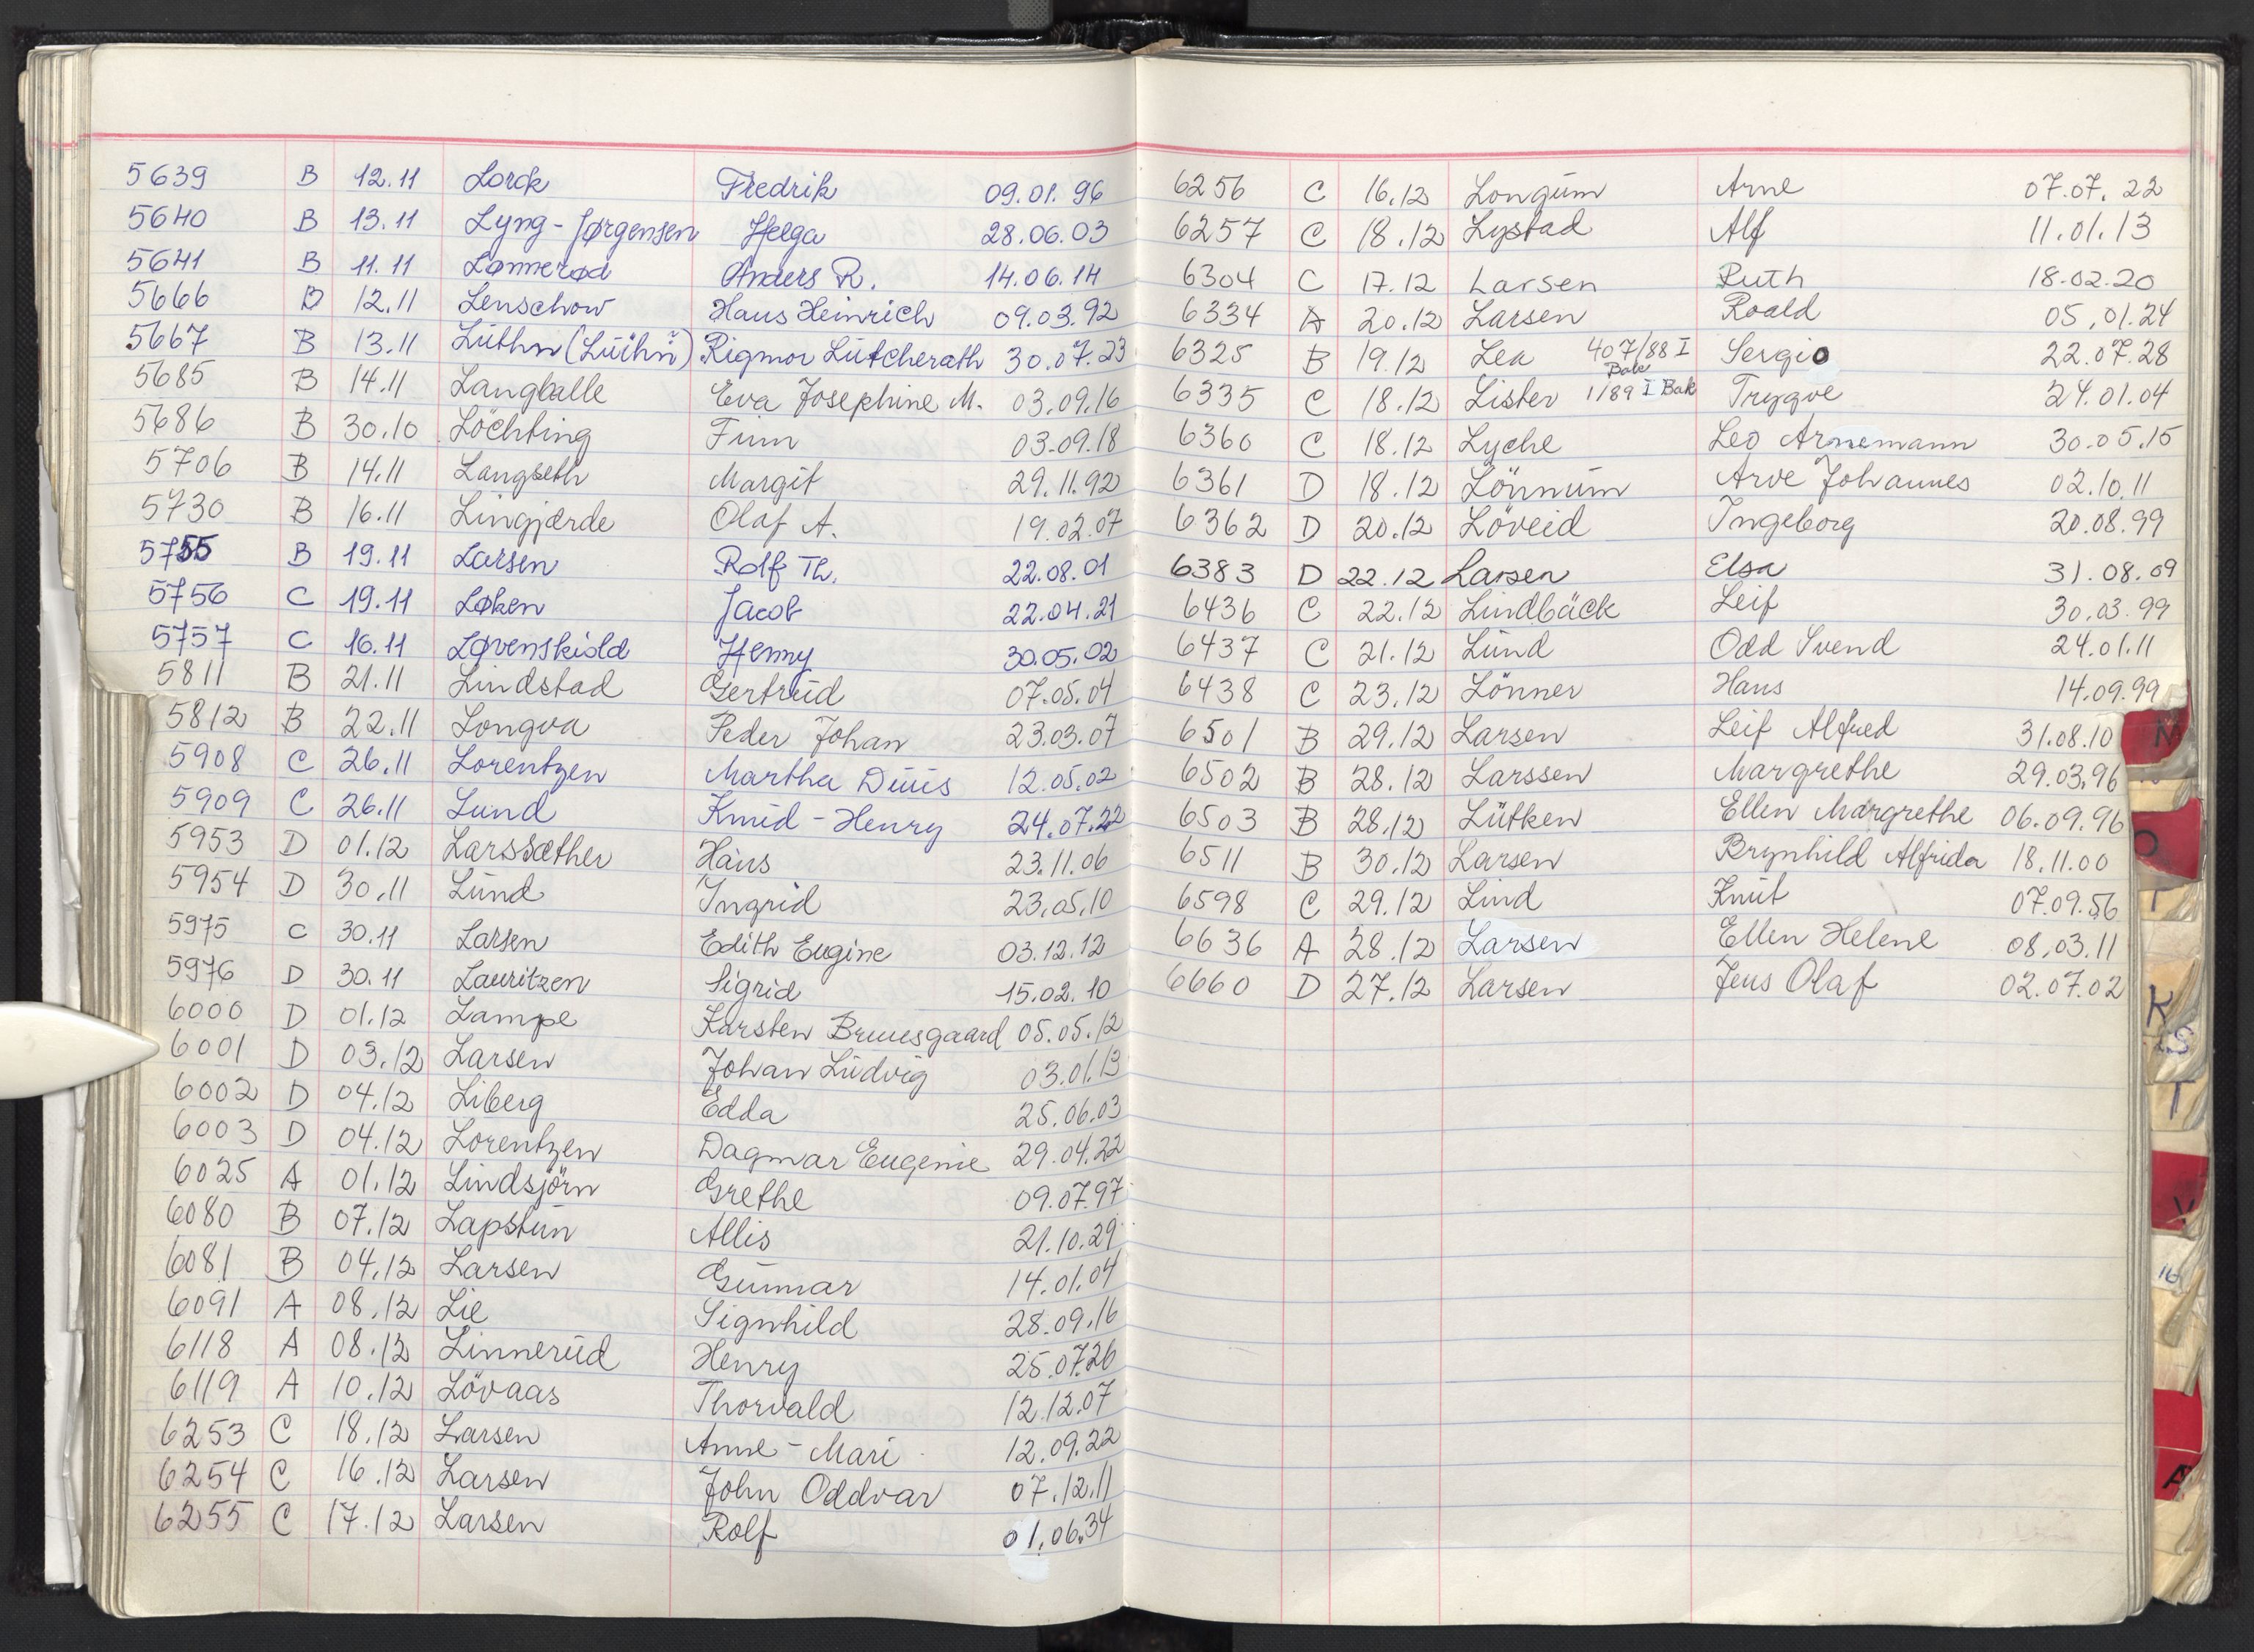 5639 B 12.11 Lorck Fredrik 09.01.96
5640 B 13.11 Lyng-Jørgensen Helga 28.06.03
5641 B 11.11 Lønnerød Anders R. 14.06.14
5666 B 12.11 Lenschow Hans Heinrich 09.03.92
5667 B 13.11 Rigmor 30.07.23
5685 B 14.11 Langballe Eva Josephine M. 03.09.16
5686 B 30.10 Löchting Finn 03.09.18
5706 B 14.11 Langseth Margit 29.11.92
5730 B 16.11 Lingjærde Olaf A. 19.02.07
5755 B 19.11 Larsen Rolf Th. 22.08.01
5756 C 19.11 Løken Jacob 22.04.21
5757 C 16.11 Løvenskiold Henny 30.05.02
5811 B 21.11 Lindstad Gertrud 07.05.04
5812 B 22.11 Longva Peder Johan 23.03.07
5908 C 26.11 Lorentzen Martha Duus 12.05.02
5909 C 26.11 Lund Knud-Henry 24.07.22
5953 D 01.12 Larssæther Hans 23.11.06
5954 D 30.11 Lund Ingrid 23.05.10
5975 C 30.11 Larsen Edith Eugine 03.12.12
5976 D 30.11 Lauritzen Sigrid 15.02.10
6000 D 01.12 Lampe Karsten Bruusgaard 05.05.12
6001 D 03.12 Larsen Johan Ludvig 03.01.13
6002 D 04.12 Liberg Edda 25.06.03
6003 D 04.12 Lorentzen Dagmar Eugenie 29.04.22
6025 A 01.12 Lindsjörn Grethe 09.07.97
6080 B 07.12 Lapstun Allis 21.10.29
6081 B 04.12 Larsen Gunnar 14.01.04
6091 A 08.12 Lie Signhild 28.09.16
6118 A 08.12 Linnerud Henry 25.07.26
6119 A 10.12 Lövaas Thorvald 12.12.07
6253 C 18.12 Larsen Anne-Mari 12.09.22
6254 C 16.12 Larsen John Oddvar 07.12.11
6255 C 17.12 Larsen Rolf 01.06.34
6256 C 16.12 Longum Arne 07.07.22
6257 C 18.12 Lystad Alf 11.01.13
6304 C 17.12 Larsen Ruth 18.02.20
6334 A 20.12 Larsen Roald 05.01.24
6325 B 19.12 Lea 407/88 I Bak Sergio 22.07.28
6335 C 18.12 Lister 1/89 I Bak Trygve 24.01.04
6360 C 18.12 Lyche Leo Arnemann 30.05.15
6361 D 18.12 Lönnum Arve Johannes 02.10.11
6362 D 20.12 Löveid Ingeborg 20.08.99
6383 D 22.12 Larsen Elsa 31.08.09
6436 C 22.12 Lindbäck Leif 30.03.99
6437 C 21.12 Lund Odd Svend 24.01.11
6438 C 23.12 Lönner Hans 14.09.99
6501 B 29.12 Larsen Leif Alfred 31.08.10
6502 B 28.12 Larssen Margrethe 29.03.96
6503 B 28.12 Lütken Ellen Margrethe 06.09.96
6511 B 30.12 Larsen Brynhild Alfrida 18.11.00
6598 C 29.12 Lind Knut 07.09.56
6636 A 28.12 Larsen Ellen Helene 08.03.11
6660 D 27.12 Larsen Jens Olaf 02.07.02
M
O
K
S
T
V